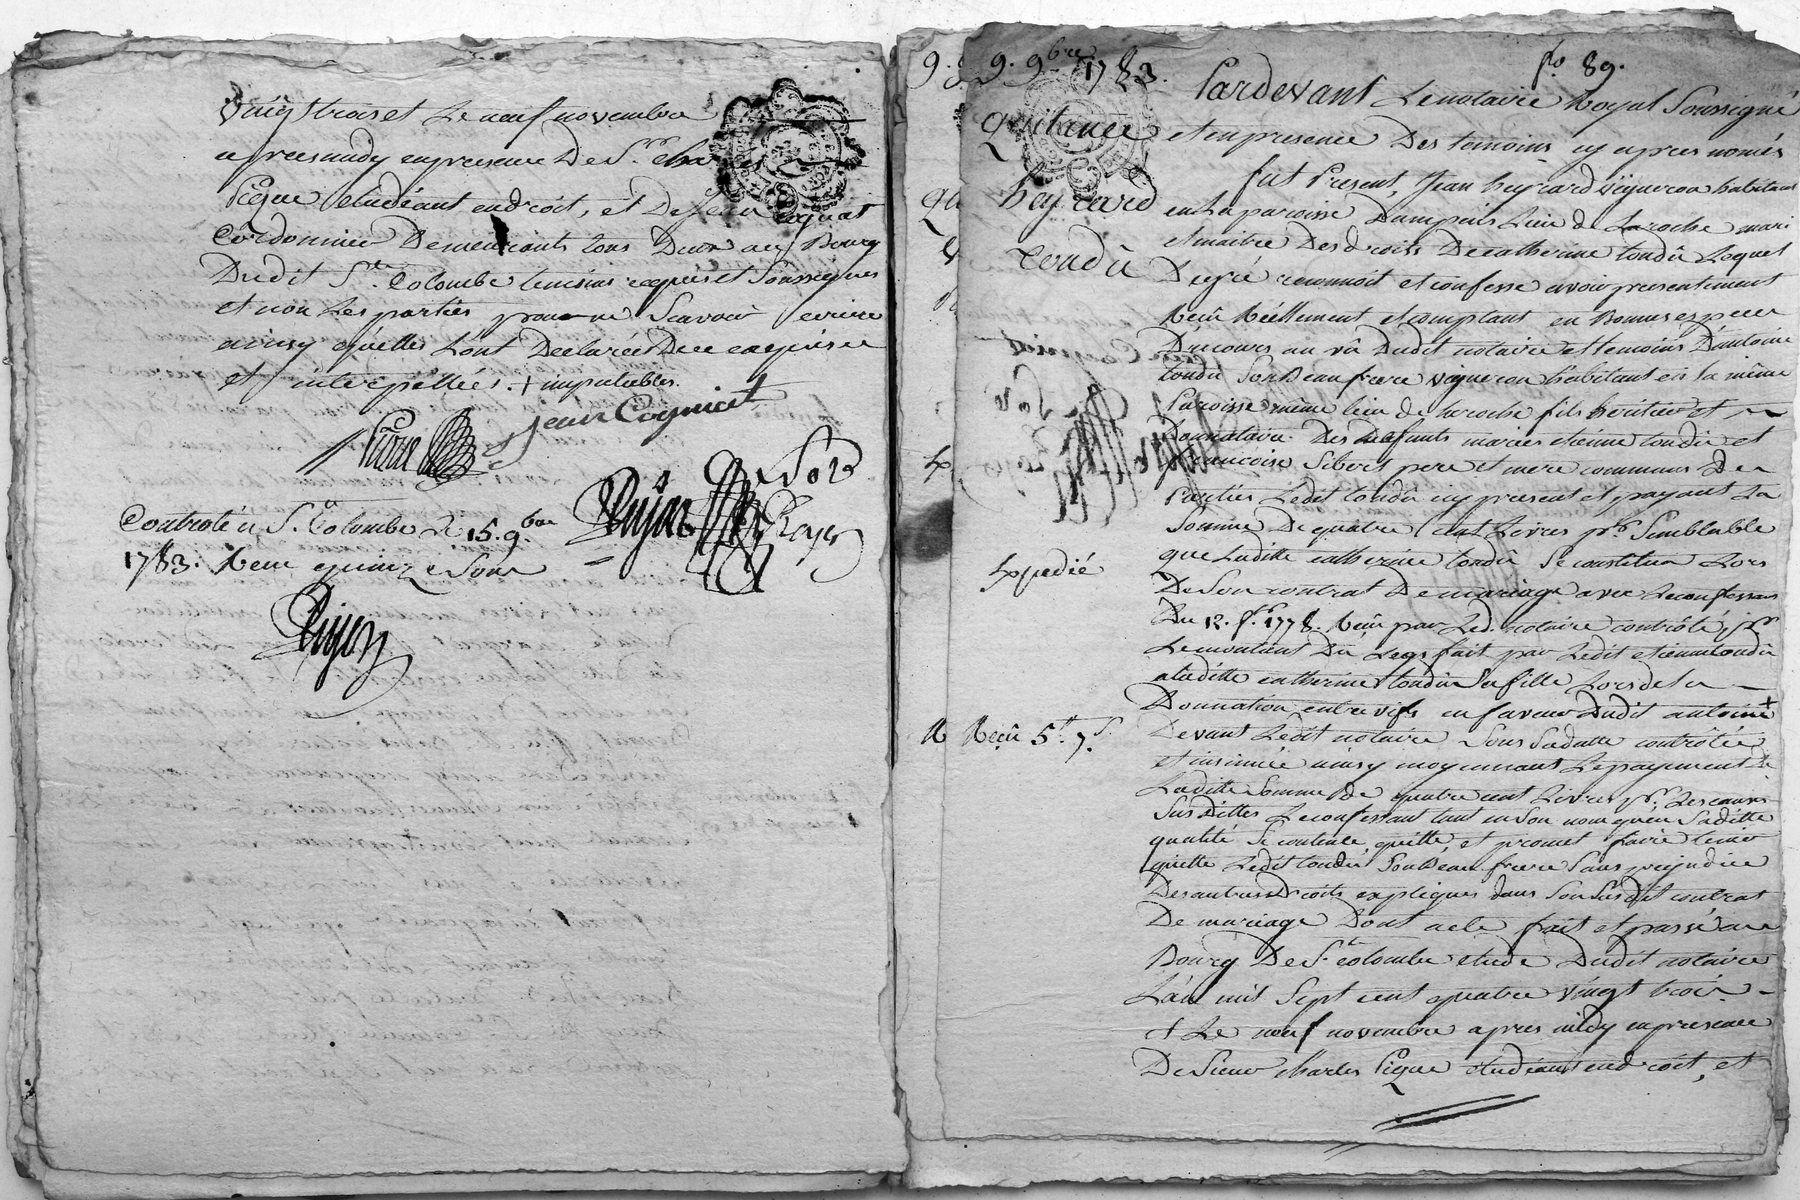 vingt trois et le neuf novembre
apres midy en presence de Sr. Charles
Pëque etudiant en droit, et de Jean Cognat
Cordonnier demeurants tous deux au Bourg
dudit Ste. Colombe temoins requis et Soussignés
et non les parties pour ne Scavoir ecrire
ainsy qu'elles l'ont declaré de ce enquises
et interpellées. + imputables.
Jean Cogniat
Pëcue
Dujon
Controlé a Ste. Colombe le 15. 9bre
1783. Reçu quinze Sous
Dujon
9. 9bre 1783.
fo 89.
quitance
heyrard
tondû
Expedié
Reçû 5tt. 7s.
Pardevant le notaire Royal Soussigné
et en presence des temoins cy apres només
fut present, Jean heyrard vigneron habitant
en la paroisse d'ampuis lieu de laroche mari
et maitre des droits de catherine tondû lequel
de gré reconnoit et confesse avoir presentement
Reçû Réellement et comptant en Bonnes especes
de cours au vû dudit notaire et temoins d'antoine
tondû Son Beau frere vigneron habitant en la même
Paroisse même lieu de laroche fils heritier et
donnataire des deffunts mariés etienne tondû et
francoise Sibert pere et mere communs des
Parties ledit tondû icy present et payant la
Somme de quatre Cent livres pr. Semblable
que laditte catherine tondû Se constitua lors
de Son contrat de mariage avec le confessant
Du 12. 1778. Reçû par led. notaire controlé,
le montant du legs fait par ledit etienne tondû
a laditte catherine tondû Sa fille lors de la
Donnation entre vifs en faveur dudit antoine +
devant ledit notaire Sous Sa datte controlée
et insinuée ainsy moyennant le payement de
laditte Somme de quatre cent livres pr. les causes
Susdittes le confessant tant en Son nom qu'en Saditte
qualité Se contente, quitte, et promet faire tenir
quitte ledit tondû Son Beau frere Sans prejudice
des autres droits expliqués dans Son Susdit contrat
de mariage Dont acte fait et passé au
Bourg de Ste. colombe etude dudit notaire
L'an mil Sept cent quatre vingt trois
et le neuf novembre apres midy en presence
de Sieur charles Pëque etudiant en droit, et